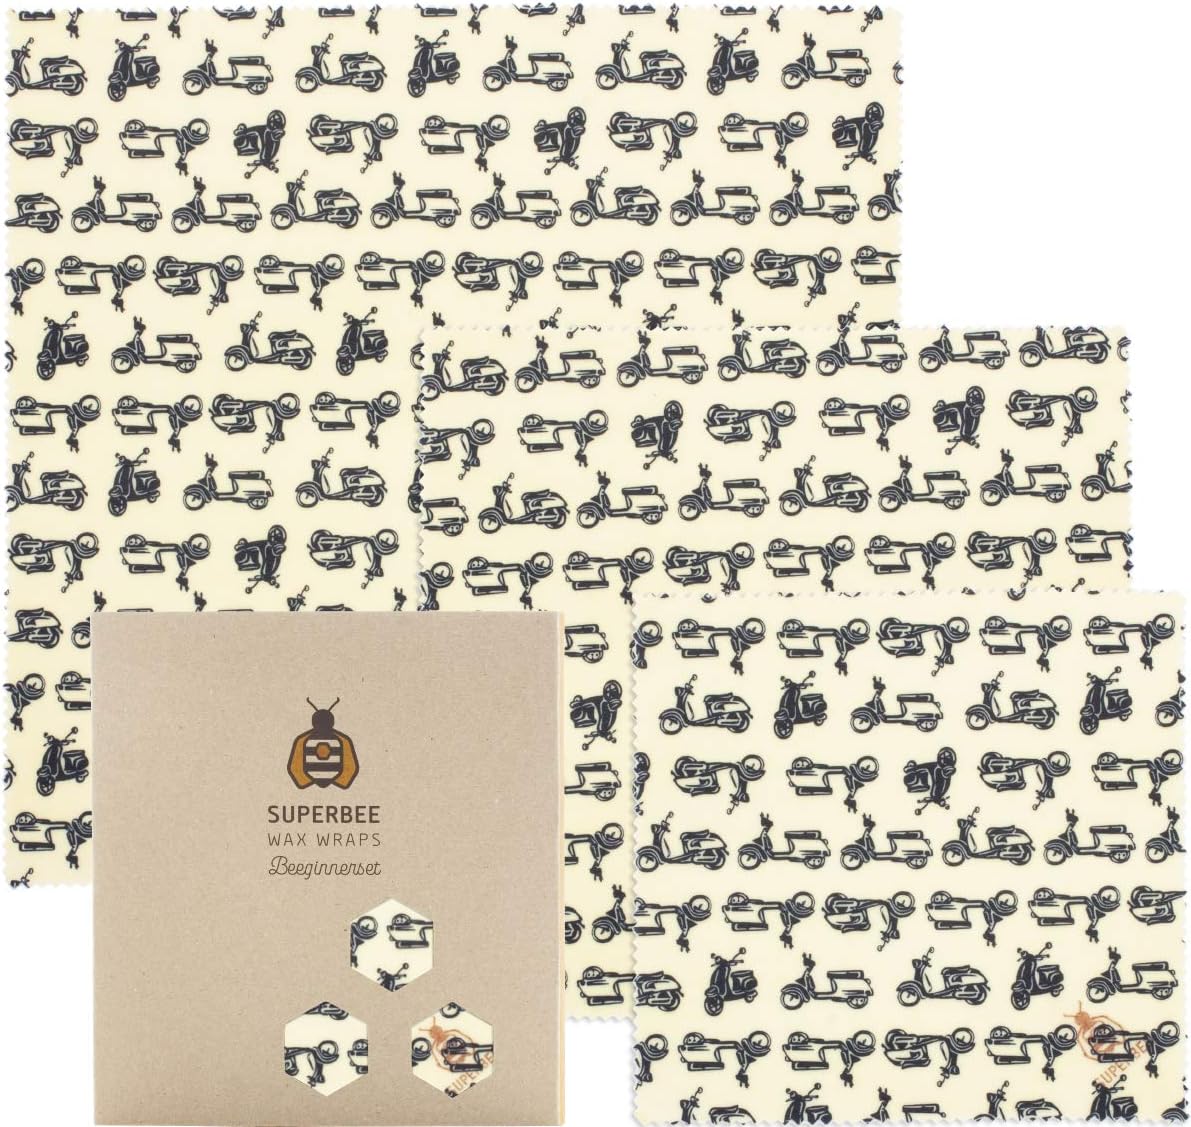 SUPERBEE
WAX WRAPS
Beeginnerset
SUPERBEE
SUPERBEE